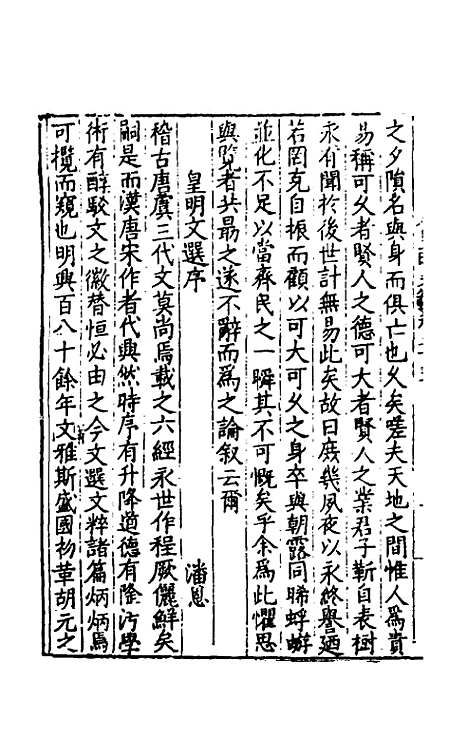 之夕隕名與身而俱亡也久矣嗟夫天地之間惟人為貴
易稱可久者賢人之德可大者賢人之業君子靳自表樹
永有聞於後世計無易此矣故曰庶幾夙夜以永終譽廼
若罔克自振而顧以可大可久之身卒與朝露同晞蜉蝣
並化不足以當齊民之一瞬其不可慨矣乎余為此懼思
與覽者共朂之遂不辭而為之論叙云爾
皇明文選序 潘恩
稽古唐虞三代文莫尚焉載之六經永世作程厥儷鮮矣
嗣是而漢唐宋作者代興然時序有升降道德有隆汚學
術有醇駁文之徽替恒必由之今文選文粹諸篇炳炳焉
可攬而窺也明興百八十餘年文雅斯盛國初革胡元之